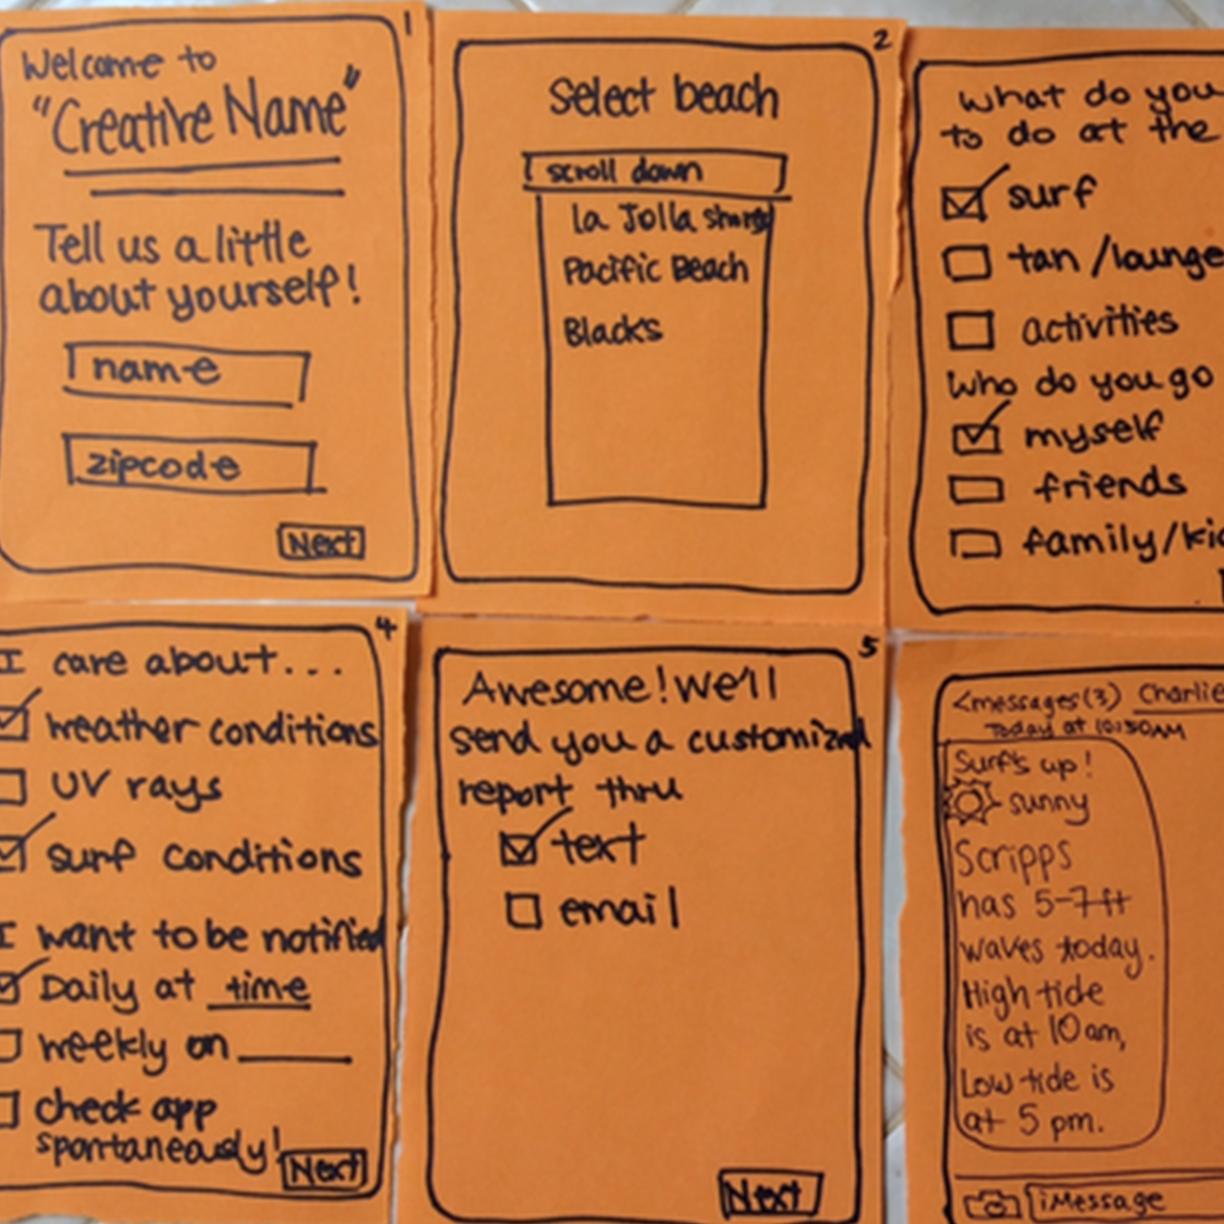 1
Welcome to
"Creative Name"
Tell us a little
about yourself!
name
zipcode
Next
2
Select beach
scroll down
La Jolla shores
Pacific Beach
Blacks
What do you
to do at the
surf
tan/lounge
activities
Who do you go
myself
friends
family/
4
I care about...
weather conditions
UV rays
surf conditions
I want to be notified
Daily at time
weekly on
check app
spontaneously!
Next
5
Awesome! We'll
send you a customized
report thru
text
email
Next
<messages(3) Charlie
Today at 10:30AM
Surf's up!
sunny
Scripps
has 5-7ft
waves today.
High tide
is at 10am,
Low tide is
at 5 pm.
iMessage